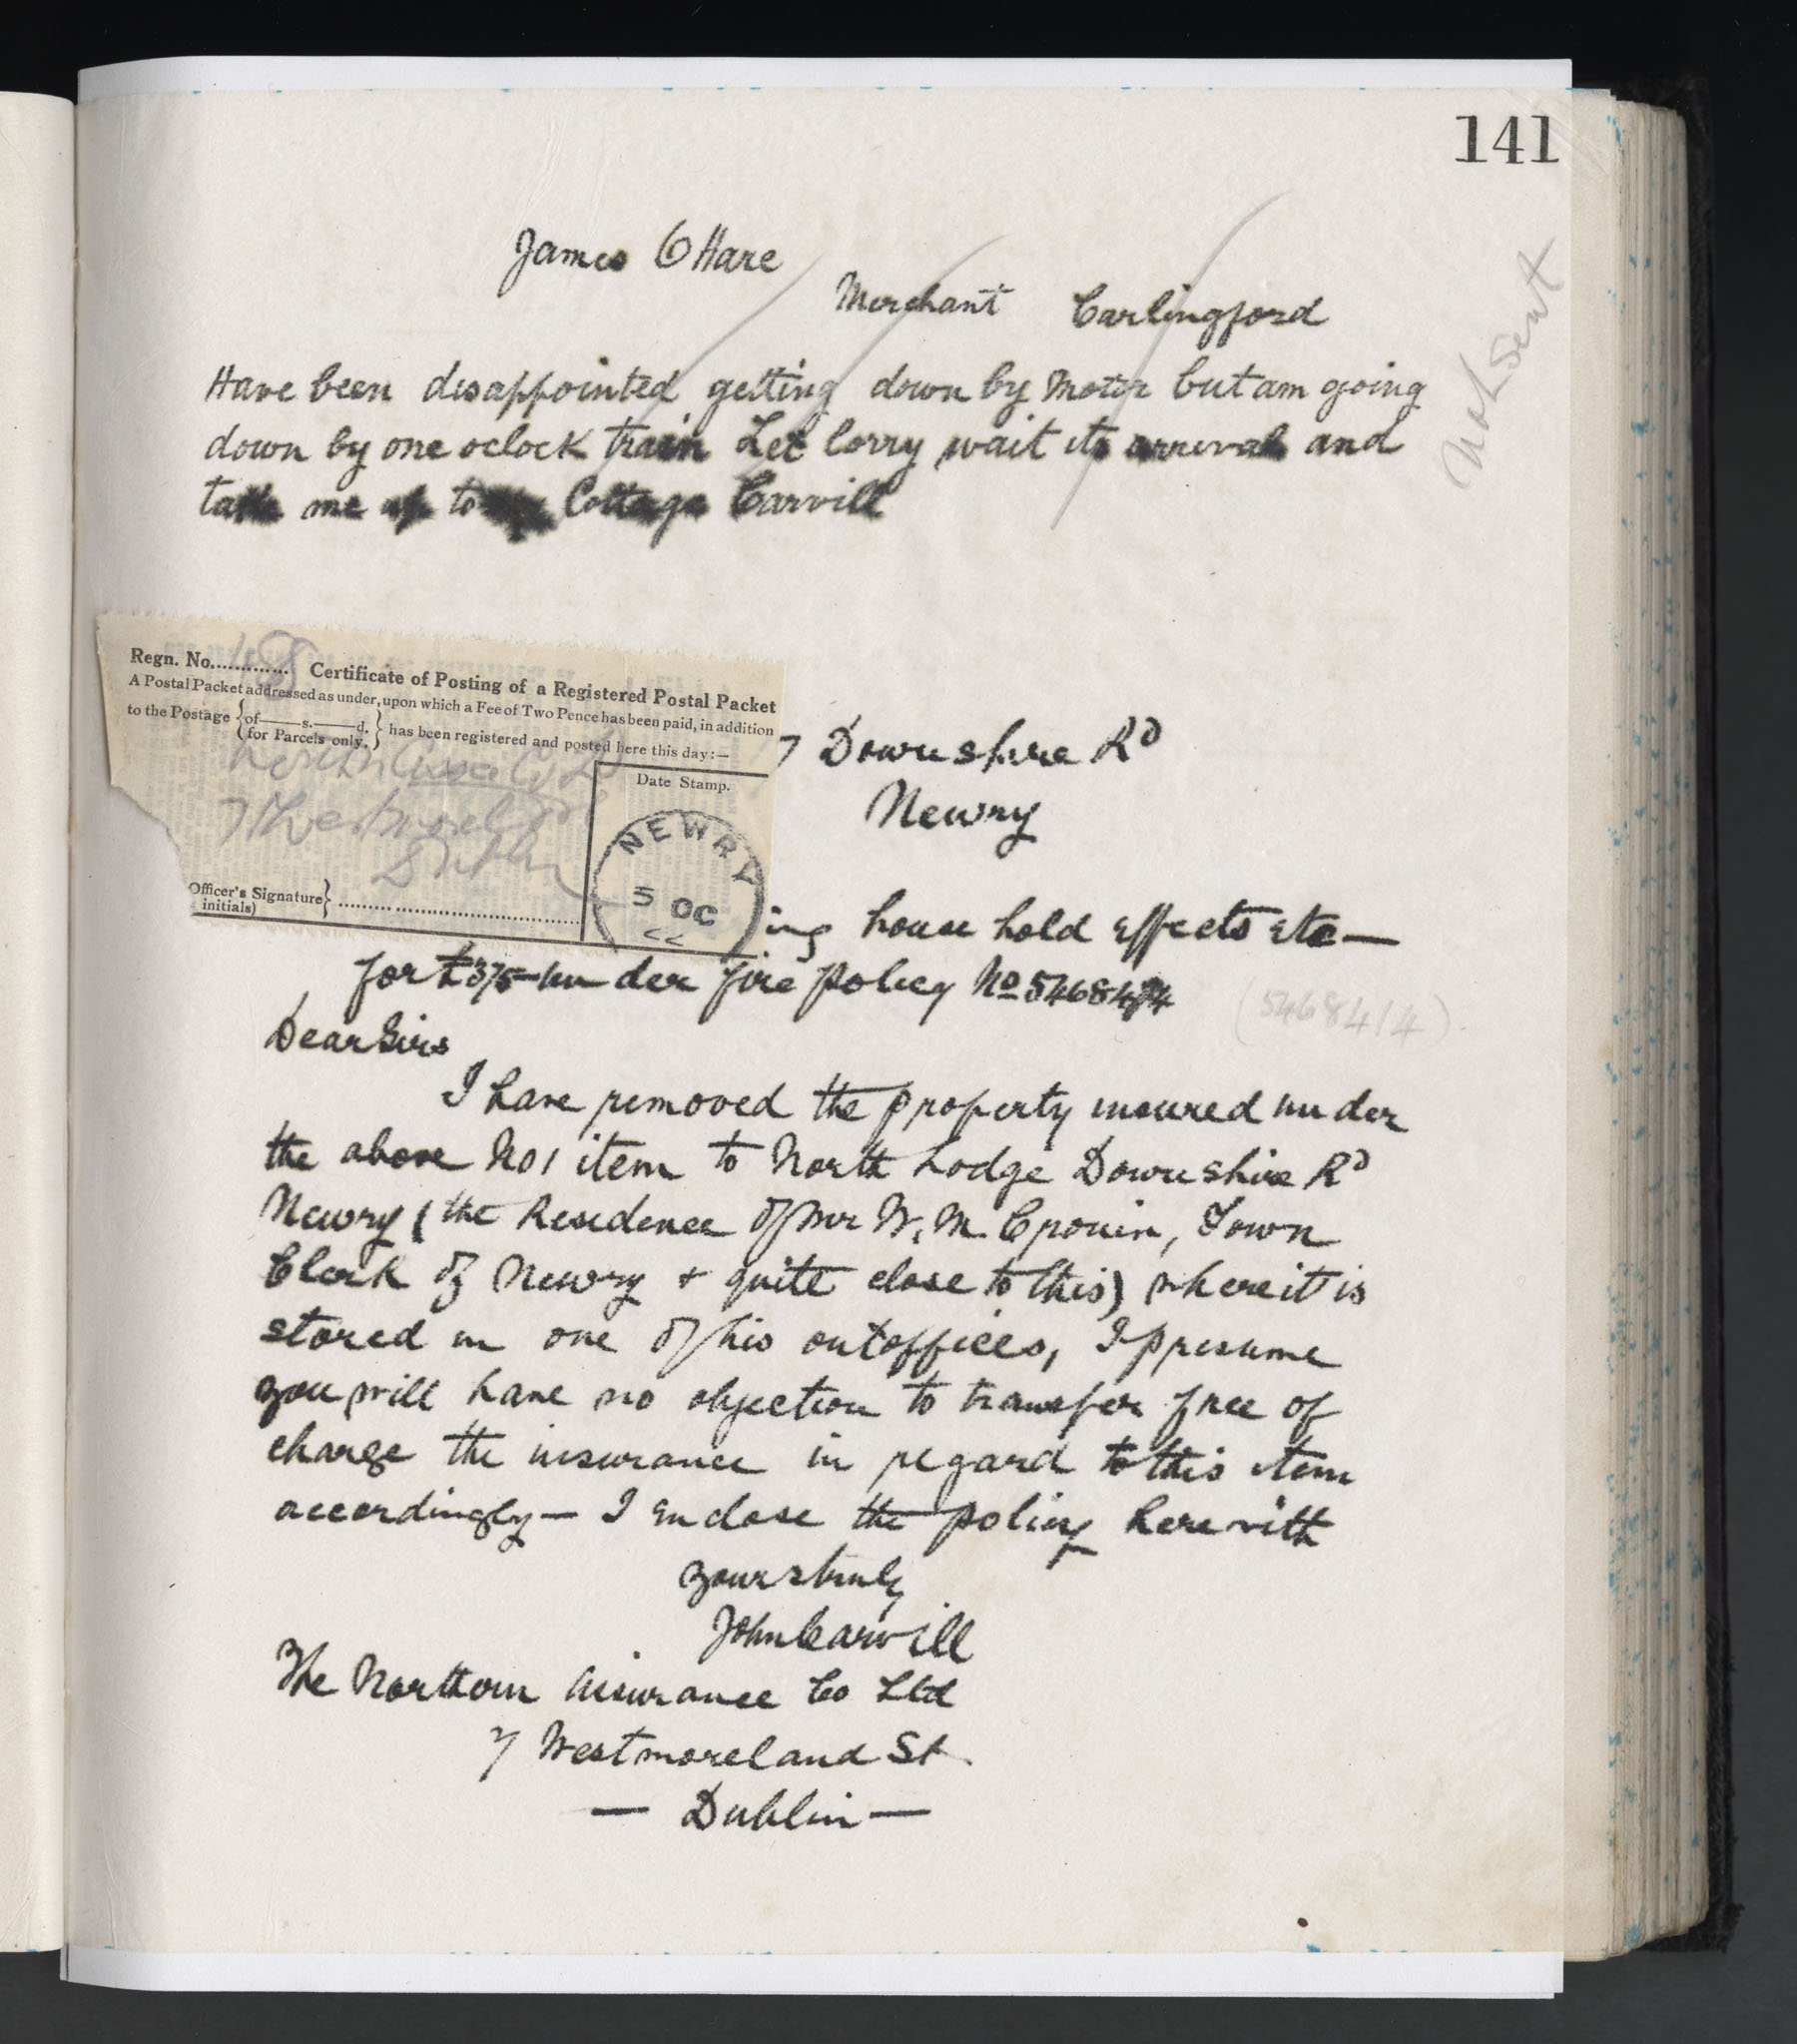 141
James O Hare
Merchant Carlingford
Not Sent
Have been disappointed getting down by Motor but am going
down by one oclock train Let lorry wait its arrival and
take me up to Cottage Carvill
Regn. No. 158 Certificate of Posting of a Registered Postal Packet
A Postal Packet addressed as under, upon which a Fee of Two Pence has been paid, in addition
to the Postage {of——s.——d. for Parcels only.} has been registered and posted here this day:—
Northn Assce Co Ld
7 Westmorel St
Dublin
Date Stamp.
NEWRY
5 OC
22
Officer's Signature}
initials)
7 Downshire Rd
Newry
ing house hold effects etc—
for £375— under fire policy No 5468414
(5468414).
Dear Sirs
I have removed the property insured under
the above No 1 item to North Lodge Downshire Rd
Newry (the Residence of Mr W. M. Cronin, Town
Clerk of Newry + quite close to this) where it is
stored in one of his outoffices, I presume
you will have no objection to transfer free of
charge the insurance in regard to this item
accordingly— I enclose the policy herewith
yours truly
John Carvill
The Northern Assurance Co Ltd
7 Westmoreland St.
— Dublin —